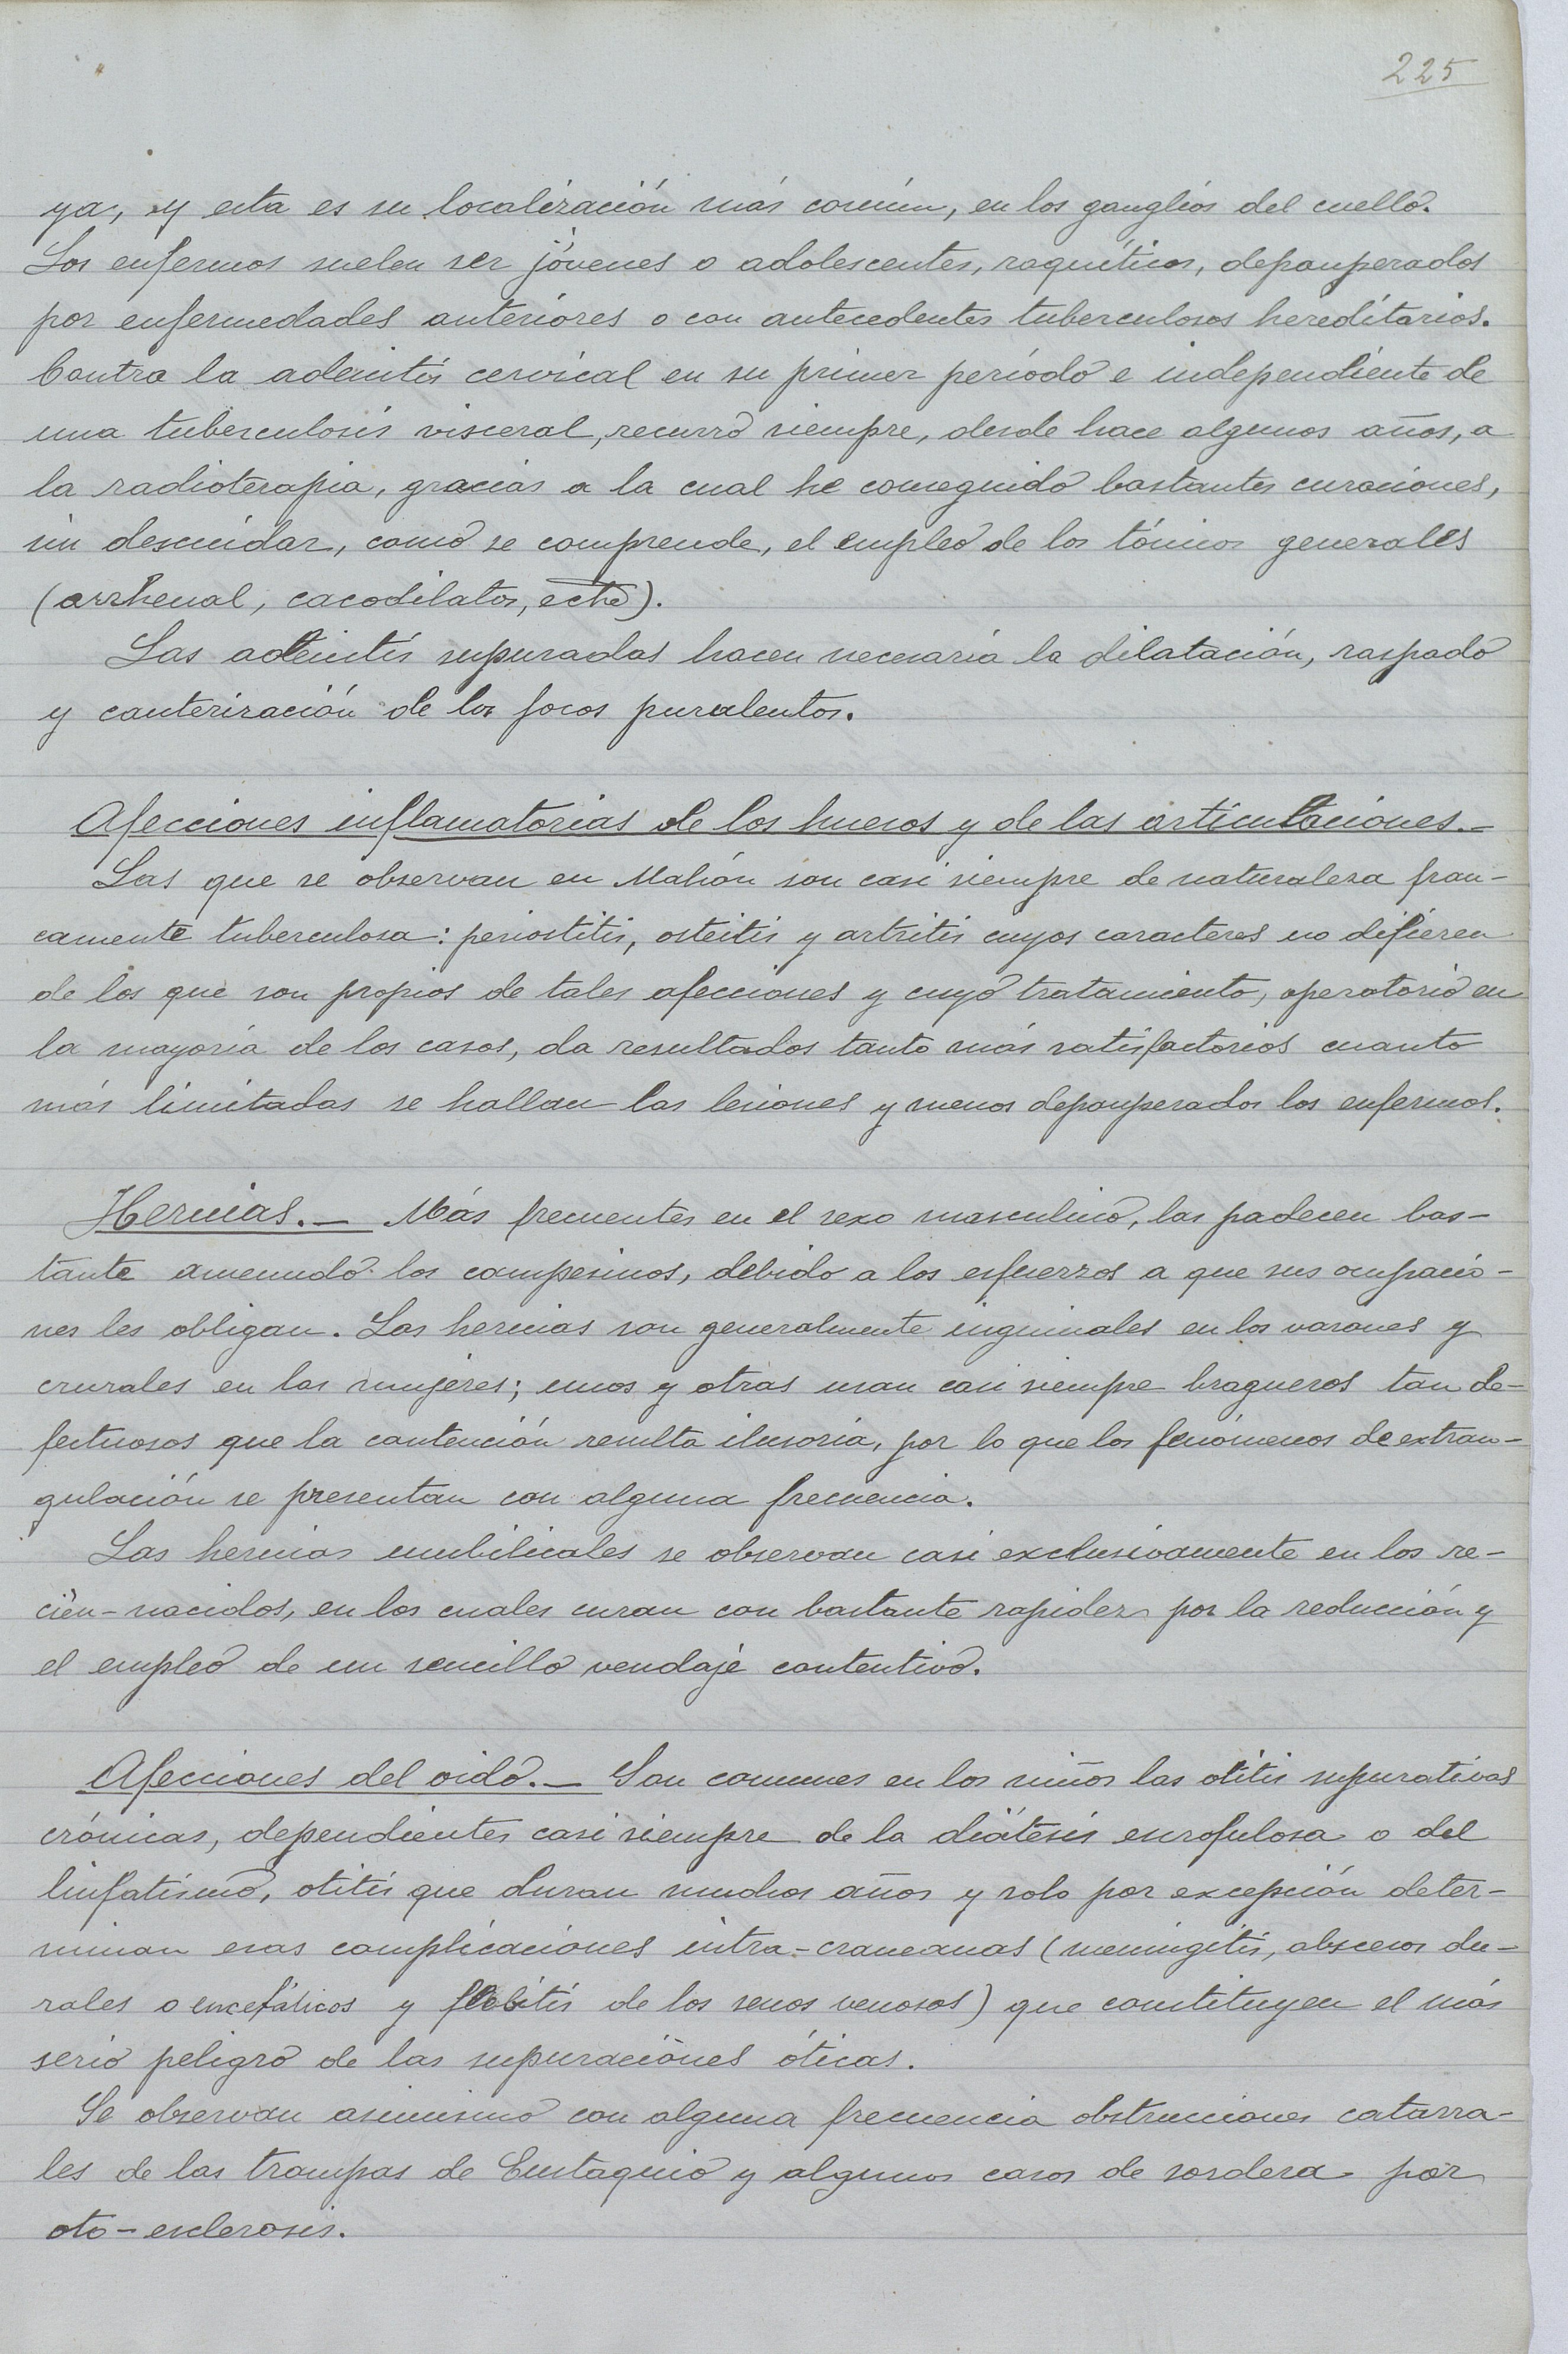 225
ya, y esta es su localización más común, en los ganglios del cuello.
Los enfermos suelen ser jóvenes o adolescentes, raquíticos, depauperados
por enfermedades anteriores o con antecedentes tuberculosos hereditarios.
Contra la adenitis cervical en su primer período e independiente de
una tuberculosis visceral, recurro siempre, desde hace algunos años, a
la radioterapia, gracias a la cual he conseguido bastantes curaciones,
sin descuidar, como se comprende, el empleo de los tónicos generales
(arrhenal, cacodilatos, etc).
Las adenitis supuradas hacen necesaria la dilatación, raspado
y cauterización de los focos purulentos.
Afecciones inflamatorias de los huesos y de las articulaciones.—
Las que se observan en Mahón son casi siempre de naturaleza fran-
camente tuberculosa: periostitis, osteitis y artritis cuyos caracteres no difieren
de los que son propios de tales afecciones y cuyo tratamiento, operatorio en
la mayoría de los casos, da resultados tanto más satisfactorios cuanto
más limitadas se hallan las lesiones y menos depauperados los enfermos.
Hernias.— Más frecuentes en el sexo masculino, las padecen bas-
tante amenudo los campesinos, debido a los esfuerzos a que sus ocupacio-
nes les obligan. Las hernias son generalmente inguinales en los varones y
crurales en las mujeres; unos y otras usan casi siempre bragueros tan de-
fectuosos que la contención resulta ilusoria, por lo que los fenómenos de extran-
gulación se presentan con alguna frecuencia.
Las hernias umbilicales se observan casi exclusivamente en los re-
cién-nacidos, en los cuales curan con bastante rapidez por la reducción y
el empleo de un sencillo vendaje contentivo.
Afecciones del oido.— Son comunes en los niños las otitis supurativas
crónicas, dependientes casi siempre de la diátesis escrofulosa o del
linfatismo, otitis que duran muchos años y solo por excepción deter-
minan esas complicaciones intra-craneanas (meningitis, abscesos du-
rales o encefálicos y flebitis de los senos venosos) que constituyen el más
serio peligro de las supuraciones óticas.
Se observan asimismo con alguna frecuencia obstrucciones catarra-
les de las trompas de Eustaquio y algunos casos de sordera por
oto-esclerosis.